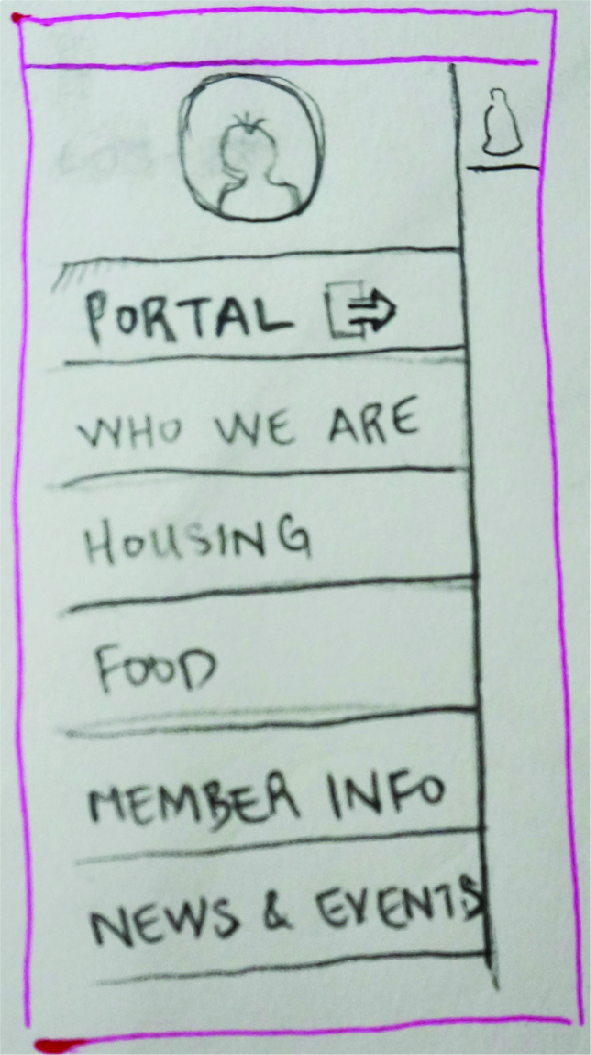 PORTAL
WHO WE ARE
HOUSING
FOOD
MEMBER INFO
NEWS & EVENTS